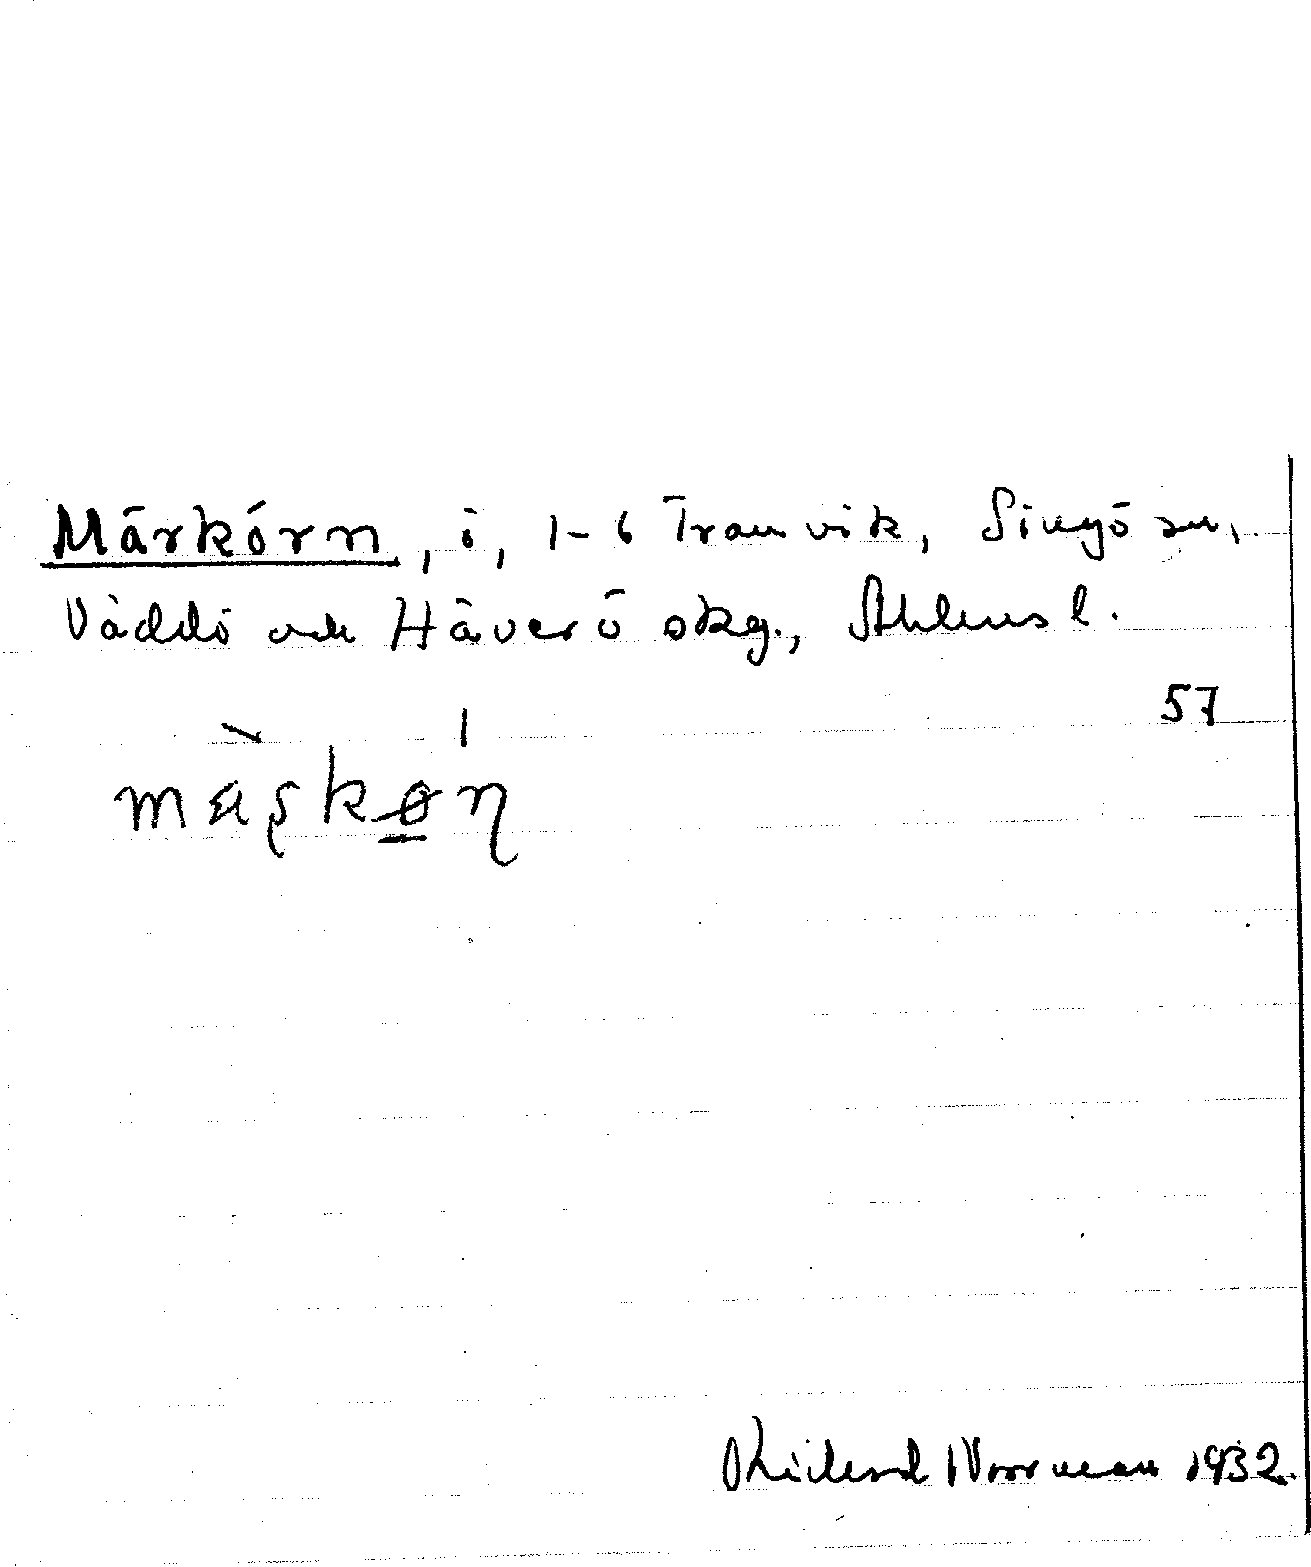 Märkörn, i, 1-6 Tranvik, Singö sn,
Väddö och Häverö skg., Sthlms l.
57
mäşkøn
Rickard Norrman 1932.